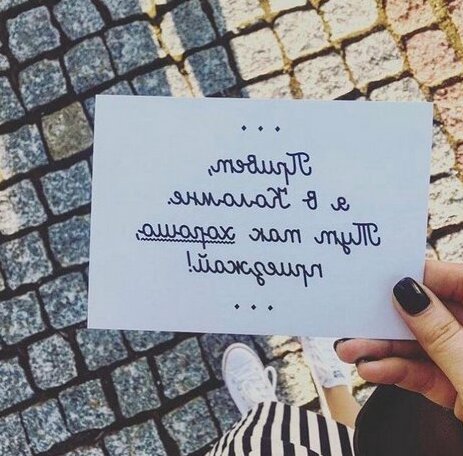 • • •
Привет,
я в Коломне.
Тут так хорошо,
приезжай!
• • •